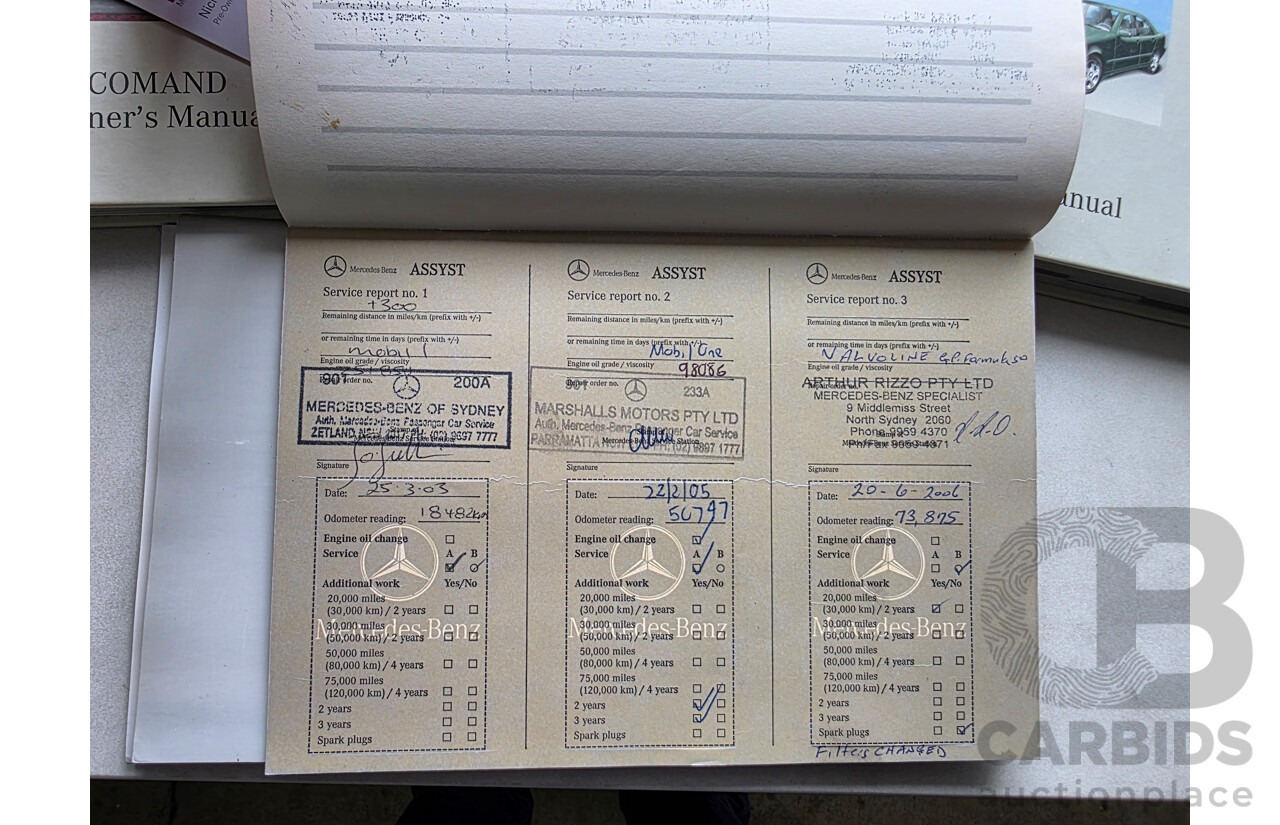 COMAND
ner's Manua
anual
Mercedes-Benz ASSYST
Service report no. 1
+300
Remaining distance in miles/km (prefix with +/-)
or remaining time in days (prefix with +/-)
mobil 1
Engine oil grade / viscosity
Repair order no.
901 200A
MERCEDES-BENZ OF SYDNEY
Auth. Mercedes-Benz Passenger Car Service
ZETLAND (02) 9697 7777
Signature
Date: 25.3.03
Odometer reading: 18482km
Engine oil change
Service A B
Additional work Yes/No
20,000 miles
(30,000 km) / 2 years
30,000 miles
(50,000 km) / 2 years
50,000 miles
(80,000 km) / 4 years
75,000 miles
(120,000 km) / 4 years
2 years
3 years
Spark plugs
Mercedes-Benz
Mercedes-Benz ASSYST
Service report no. 2
Remaining distance in miles/km (prefix with +/-)
or remaining time in days (prefix with +/-)
Mobil One
Engine oil grade / viscosity
98086
Repair order no.
901 233A
MARSHALLS MOTORS PTY LTD
Auth. Mercedes-Benz Passenger Car Service
PARRAMATTA NSW PH: (02) 9897 1777
Signature
Date: 22/2/05
Odometer reading: 50797
Engine oil change
Service A B
Additional work Yes/No
20,000 miles
(30,000 km) / 2 years
30,000 miles
(50,000 km) / 2 years
50,000 miles
(80,000 km) / 4 years
75,000 miles
(120,000 km) / 4 years
2 years
3 years
Spark plugs
Mercedes-Benz
Mercedes-Benz ASSYST
Service report no. 3
Remaining distance in miles/km (prefix with +/-)
or remaining time in days (prefix with +/-)
VALVOLINE G.P. Formula 50
Engine oil grade / viscosity
Repair order no.
ARTHUR RIZZO PTY LTD
MERCEDES-BENZ SPECIALIST
9 Middlemiss Street
North Sydney 2060
Phone 9959 4370
Ph/Fax 9959 4371
Signature
Date: 20-6-2006
Odometer reading: 73,875
Engine oil change
Service A B
Additional work Yes/No
20,000 miles
(30,000 km) / 2 years
30,000 miles
(50,000 km) / 2 years
50,000 miles
(80,000 km) / 4 years
75,000 miles
(120,000 km) / 4 years
2 years
3 years
Spark plugs
Mercedes-Benz
Filters CHANGED
CB
CARBIDS
auctionplace